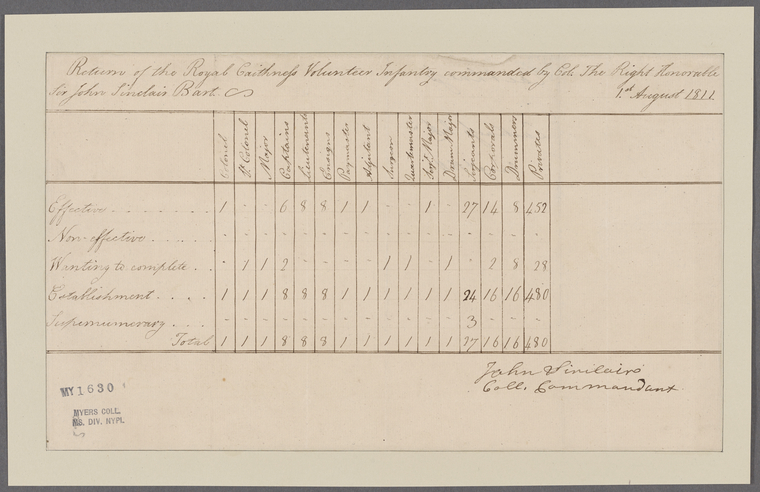 Return of the Royal Caithness Volunteer Infantry commanded by Col. The Right Honorable
Sir John Sinclair Bart. 1st August 1811
Colonel Lt. Colonel Major Captains Lieutenants Ensigns Paymaster Adjutant Surgeon Quartermaster Serjt. Major Drum Major Serjeants Corporals Drummers Privates
Effective . . . . . . . . 1 - - 6 8 8 1 1 - - 1 - 27 14 8 452
Non-effective . . . . . - - - - - - - - - - - - - - - -
Wanting to complete . . - 1 1 2 - - - - 1 1 - 1 - 2 8 28
Establishment . . . . 1 1 1 8 8 8 1 1 1 1 1 1 24 16 16 480
Supernumerary . . . - - - - - - - - - - - - 3 - - -
Total 1 1 1 8 8 8 1 1 1 1 1 1 27 16 16 480
John Sinclair
Coll. Commandant.
MY 1630
MYERS COLL.
MS. DIV. NYPL